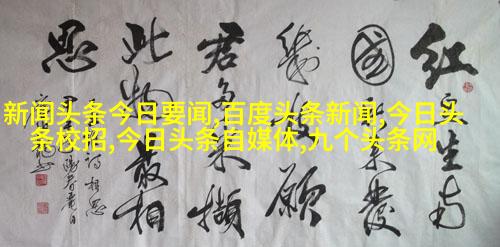 红豆生南
國春来發
幾枝願
君多采撷
此物最相
思
新闻头条今日要闻,百度头条新闻,今日头
条校招,今日头条自媒体,九个头条网